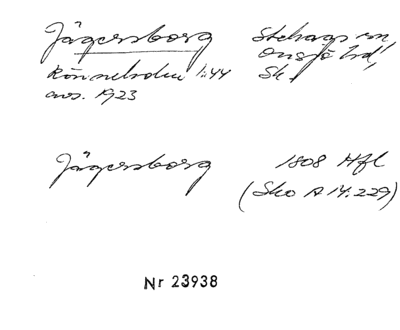 Jägersborg
Stehags sn,
Onsjö hd,
Sk.
Rönneholm 1:44
avs. 1923
Jägersborg
1808 Hfl
(Sko A 14:229)
Nr 23938